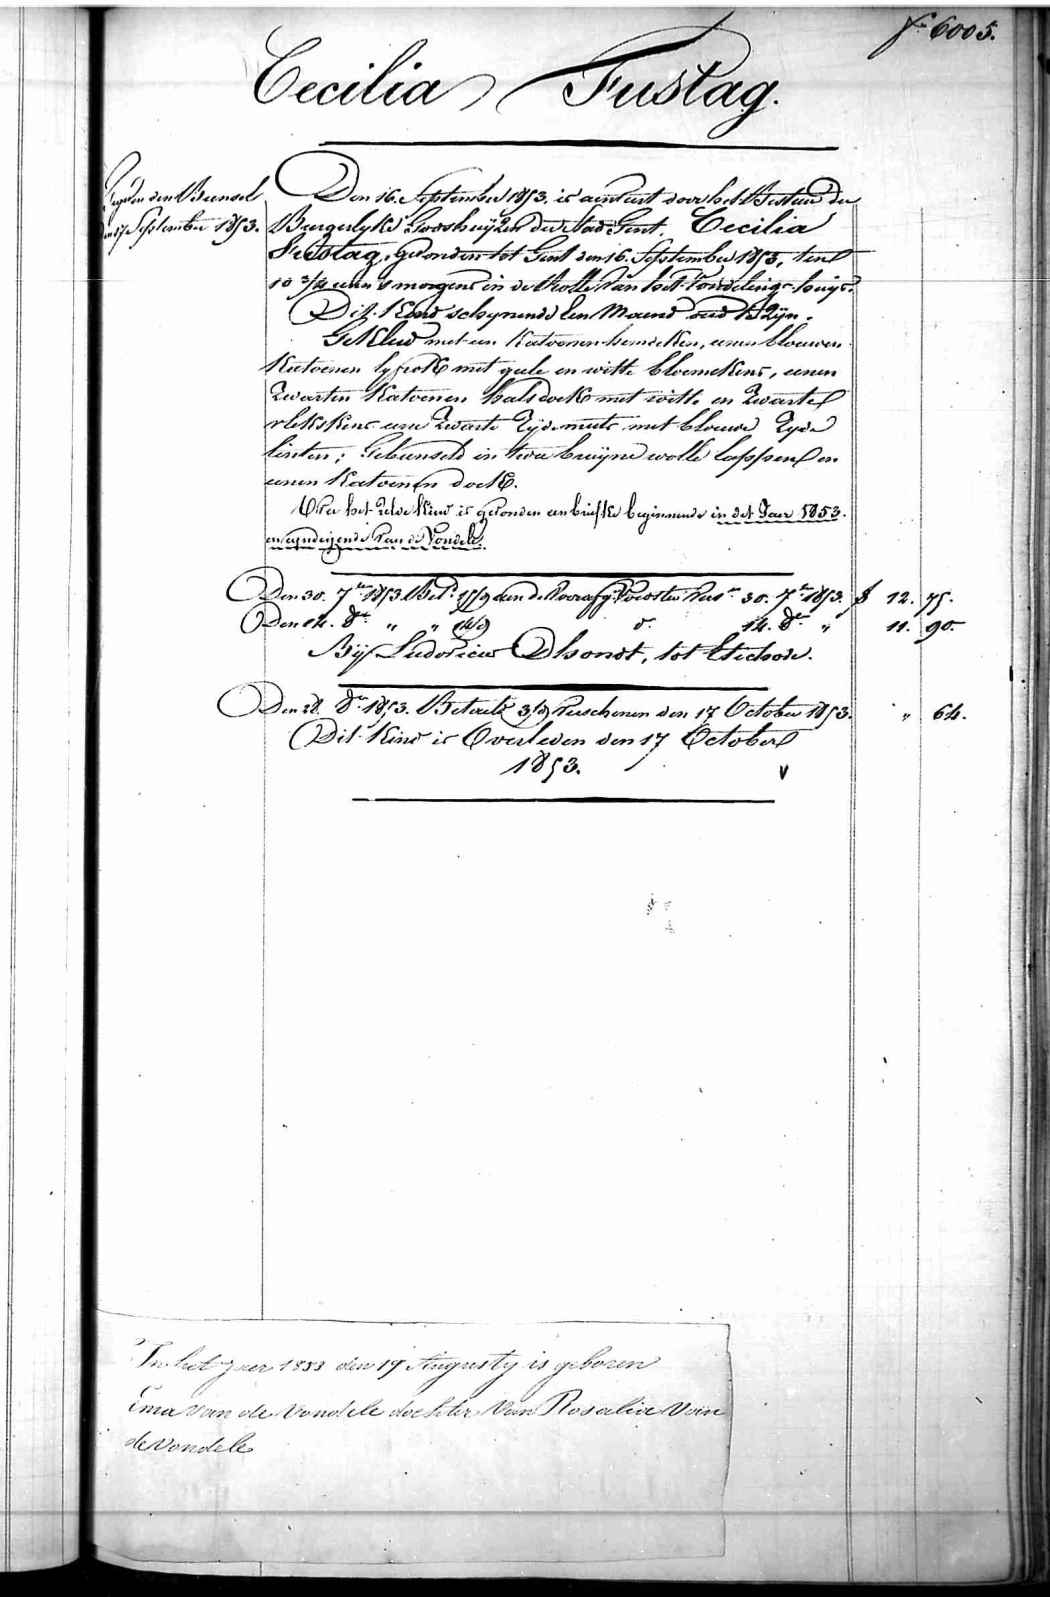 f° 6005.
Cecilia Fustag.
Gegeven den Bunsel
den 17 September 1853.
Den 16. September 1853, is aenveert door het Bestuur der
Burgerlyke Godshuyzen der Stad Gent, Cecilia
Fustag, gevonden tot Gent den 16. September 1853, ten
10 3/4 uren 's morgens in de Rolle van het Vondeling-huys.
Dit Kind schynende een Maend oud te Zyn.
Gekleed met een Katoenen hemdeken, eenen blouwen
Katoenen lyfrok met geele en witte bloemekens, eenen
Zwarten Katoenen halsdoek met witte en Zwarte
vlekskens eene Zwarte Zyde muts met blouwe Zyde
linten; Gebunseld in twee bruyne wolle lappen en
eenen Katoenen doek.
Over het zelve kind is gevonden een briefke beginnende in det Jaer 1853.
en eyndigende Van de Vondele.
Den 30. 7bre 1853. Bet. aen de Voorafg. Voedster Vers.en 30. 7bre 1853. f 12. 75.
Den 14. 8bre " " d° 14. 8bre " 11. 90.
By Ludovicus Dhondt, tot Etichove.
Den 28. 8bre 1853. Betaelt 3/9 verschenen den 17 October 1853. " 64.
Dit Kind is Overleden den 17 October
1853. v
In het Jaer 1853 den 19 Augusty is geboren
Ema van de Vondele dochter Van Rosalia Van
de Vondele